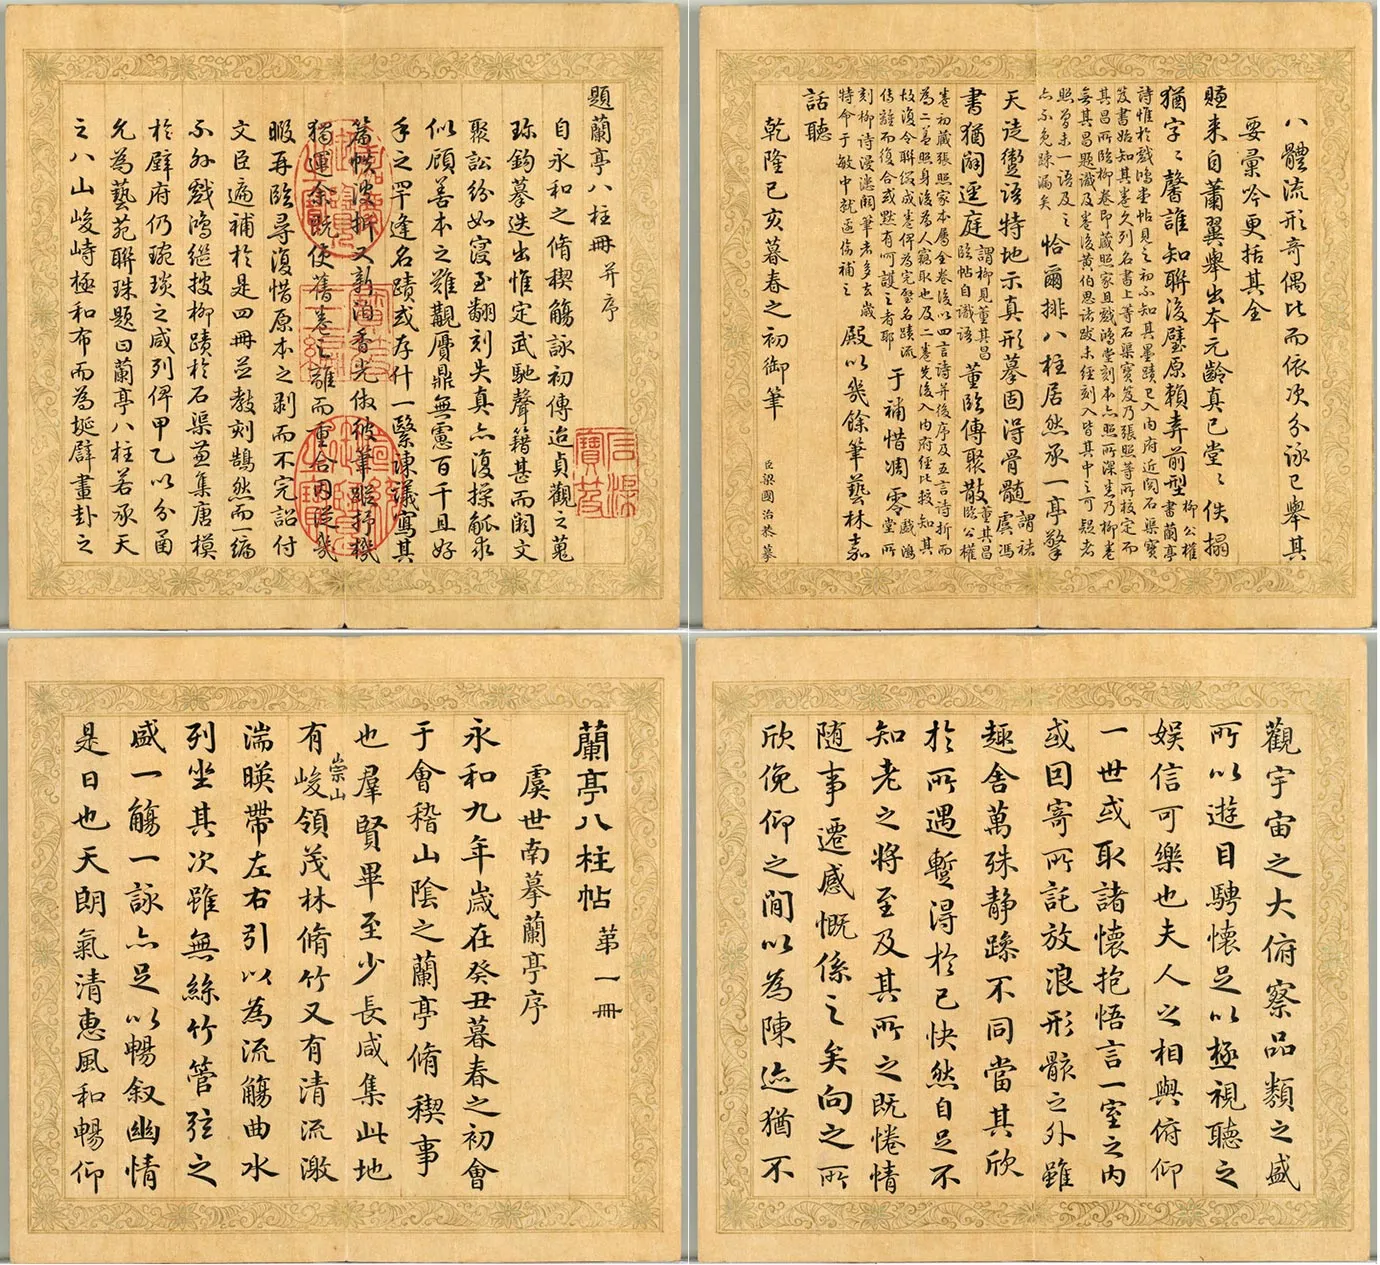 題蘭亭八柱冊并序
自永和之脩稧觴詠初傳迨貞觀之蒐
珎鈎摹迭出惟定武馳聲籍甚而閱文
聚訟紛如寖至翻刻失真亦復操觚求
似顧善本之難觀贋鼎無慮百千且好
手之罕逢名蹟或存什一繄諫議寫其
篇帙波拆又新洎香光倣彼筆蹤抒機
獨運余既使舊卷之離而重合因從幾
暇再臨尋復惜原本之剥而不完詔付
文臣遍補於是四冊並教刻鵠然而一編
不外戲鴻繼披柳蹟於石渠兼集唐模
於壁府仍琬琰之咸列俾甲乙以分函
允為藝苑聯珠題曰蘭亭八柱若承天
之八山峻峙極和布而為埏辟畫卦之
石渠寶笈
八體流形奇偶比而依次分詠已舉其
要彙吟更括其全
賺来自蕭翼舉出本元齡真已堂〻佚搨
猶字〻馨誰知聯後璧原賴弆前型 柳公權書蘭亭
詩惟於戲鴻堂帖見之初不知其墨蹟已入内府近閱石渠寳
笈書始知其卷久列名書上等石渠寳笈乃張照等所校定而
其昌所臨柳卷即藏照家且戲鴻堂刻本亦照所深悉乃柳卷
無其昌題識及卷後黄伯思諸跋未經刻入皆其中之可疑者
照曾未一語及之
亦不免踈漏矣 恰爾排八柱居然承一亭擎
天徒躗語特地示真形摹固得骨髓 謂褚虞馮
書猶關逕庭 謂柳見董其昌臨帖自識語 董臨傳聚散 董其昌臨公權
卷初藏張照家本屬全卷後以四言詩并後序及五言詩折而
為二蓋照身後為人竊取也及二卷先後入内府經比較知其
故復令聯綴成卷俾為完璧名蹟流
傳離而復合或默有呵護之者耶 于補惜凋零 戲鴻堂所
刻柳詩漫漶闕筆者多去歲
特命于敏中就邊傷補之 殿以幾餘筆藝林嘉
話聽
乾隆己亥暮春之初御筆
臣梁國治恭摹
蘭亭八柱帖 苐一冊
虞世南摹蘭亭序
永和九年歳在癸丑暮春之初會
于會稽山隂之蘭亭脩稧事
也羣賢畢至少長咸集此地
有崇山峻領茂林脩竹又有清流激
湍暎帶左右引以為流觴曲水
列坐其次雖無絲竹管弦之
盛一觴一詠亦足以暢叙幽情
是日也天朗氣清惠風和暢仰
觀宇宙之大俯察品類之盛
所以遊目騁懷足以極視聽之
娛信可樂也夫人之相與俯仰
一世或取諸懷抱悟言一室之内
或因寄所託放浪形骸之外雖
趣舍萬殊静躁不同當其欣
於所遇蹔得於己快然自足不
知老之將至及其所之既惓情
随事遷感慨係之矣向之所
欣俛仰之閒以為陳迹猶不